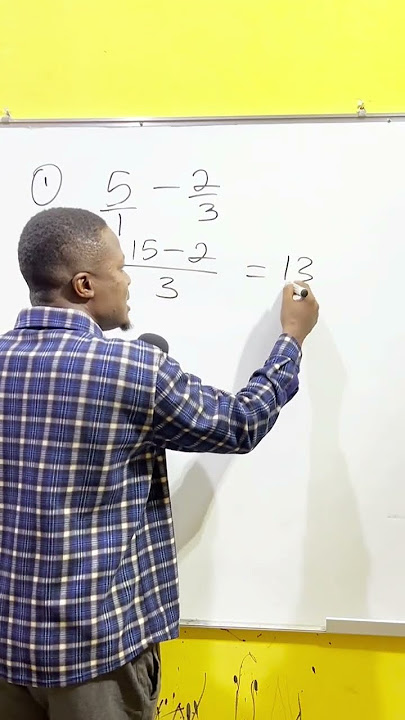 ① 5/1 − 2/3
15−2/3 = 13